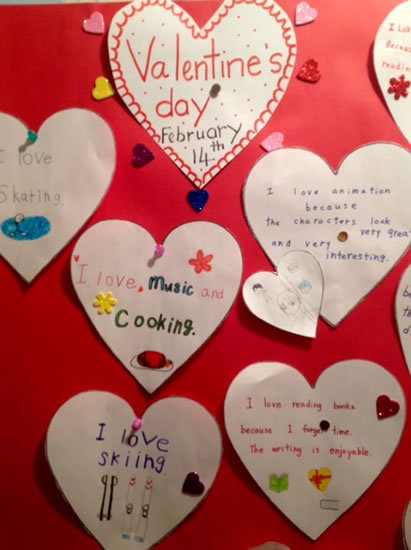 Valentine's
day
February
14th
I love
Skating.
I love animation
because
the characters look
very great
and very
interesting.
I love Music and
Cooking.
I love reading books
because I forget time.
The writing is enjoyable.
I love
skiing.